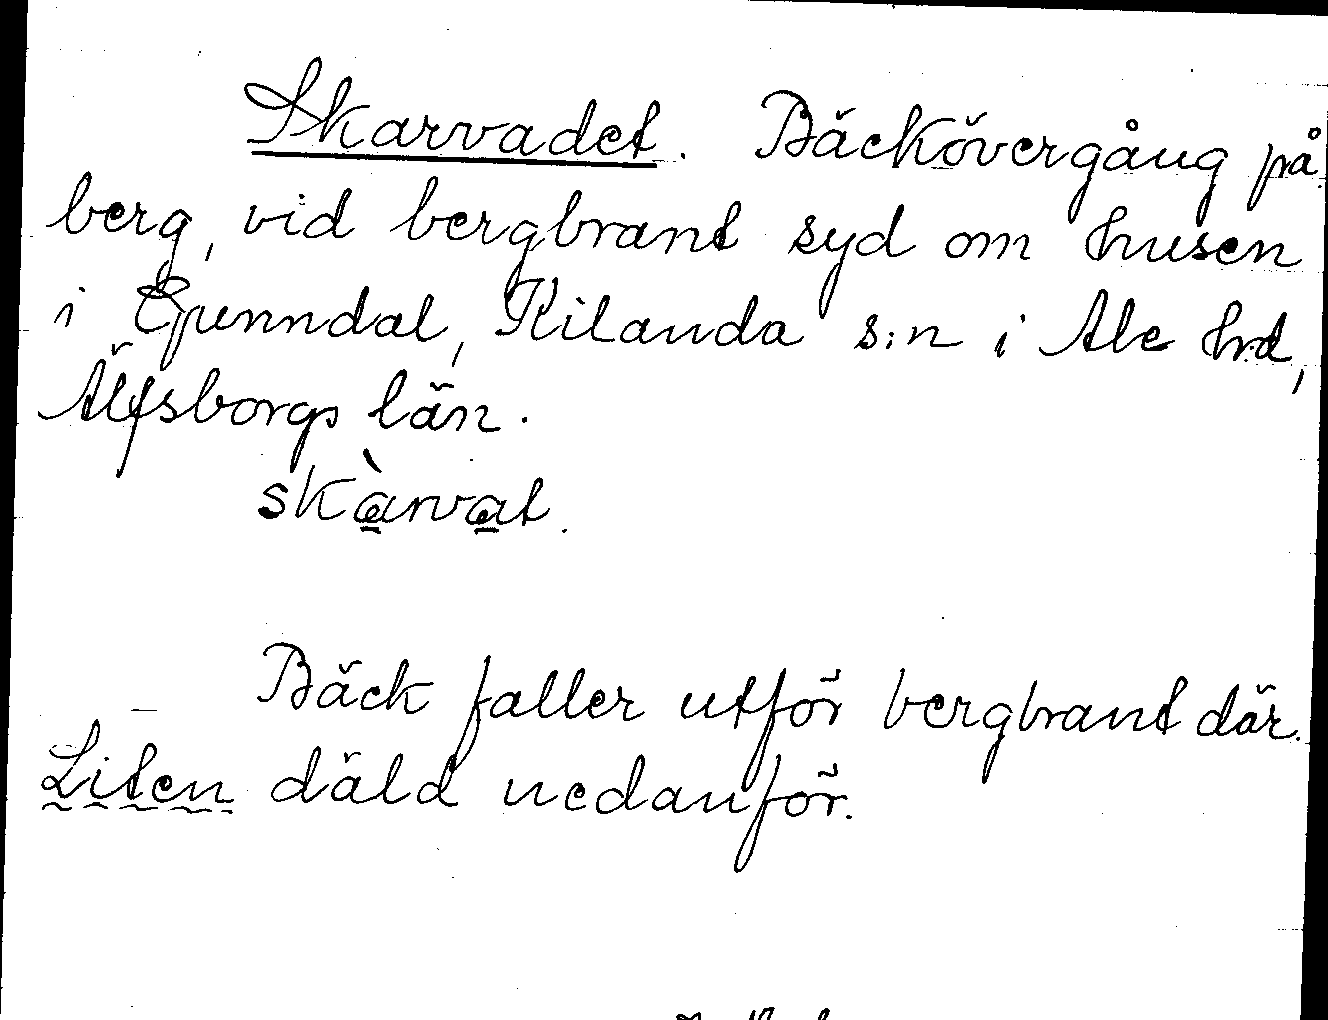 Skarvadet. Bäckövergång på
berg, vid bergbrant syd om husen
i Gunndal, Kilanda s:n i Ale hrd,
Älfsborgs län.
skàrvat.
Bäck faller utför bergbrant där.
Liten däld nedanför.